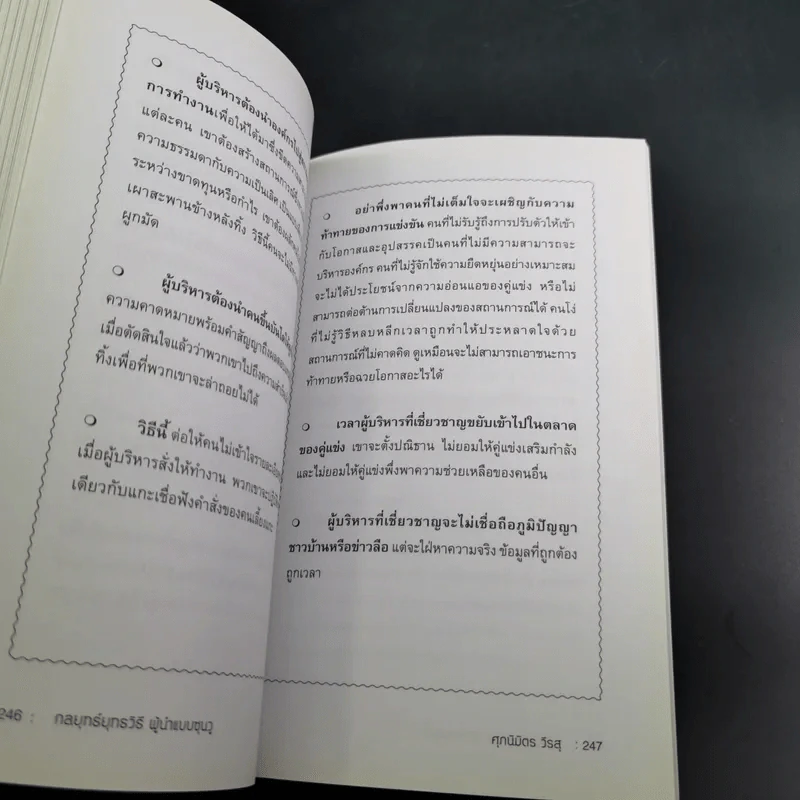 ผู้บริหารต้องนำองค์กรไปสู่
การทำงานเพื่อให้ได้มาซึ่งขีดความ
แต่ละคน เขาต้องสร้างสถานการณ์
ความธรรมดากับความเป็นเลิศ
ระหว่างขาดทุนหรือกำไร เขาต้อง
เผาสะพานข้างหลังทิ้ง วิธีนี้คนจะไม่
ผูกมัด
ผู้บริหารต้องนำตนขึ้นบันได
ความคาดหมายพร้อมคำสัญญาถึง
เมื่อตัดสินใจแล้วว่าพวกเขาไปถึงความ
ทิ้งเพื่อที่พวกเขาจะล่าถอยไม่ได้
วิธีนี้ ต่อให้คนไม่เข้าใจราย
เมื่อผู้บริหารสั่งให้ทำงาน พวกเขาจะ
เดียวกับแกะเชื่อฟังคำสั่งของคนเลี้ยงแกะ
246 : กลยุทธ์ยุทธวิธี ผู้นำแบบซุนวู
อย่าพึ่งพาคนที่ไม่เต็มใจจะเผชิญกับความ
ท้าทายของการแข่งขัน คนที่ไม่รับรู้ถึงการปรับตัวให้เข้า
กับโอกาสและอุปสรรคเป็นคนที่ไม่มีความสามารถจะ
บริหารองค์กร คนที่ไม่รู้จักใช้ความยืดหยุ่นอย่างเหมาะสม
จะไม่ได้ประโยชน์จากความอ่อนแอของคู่แข่ง หรือไม่
สามารถต่อต้านการเปลี่ยนแปลงของสถานการณ์ได้ คนโง่
ที่ไม่รู้วิธีหลบหลีกเวลาถูกทำให้ประหลาดใจด้วย
สถานการณ์ที่ไม่คาดคิด ดูเหมือนจะไม่สามารถเอาชนะการ
ท้าทายหรือฉวยโอกาสอะไรได้
เวลาผู้บริหารที่เชี่ยวชาญขยับเข้าไปในตลาด
ของคู่แข่ง เขาจะตั้งปณิธาน ไม่ยอมให้คู่แข่งเสริมกำลัง
และไม่ยอมให้คู่แข่งพึ่งพาความช่วยเหลือของคนอื่น
ผู้บริหารที่เชี่ยวชาญจะไม่เชื่อถือภูมิปัญญา
ชาวบ้านหรือข่าวลือ แต่จะใฝ่หาความจริง ข้อมูลที่ถูกต้อง
ถูกเวลา
ศุภนิมิตร วีรสุ : 247